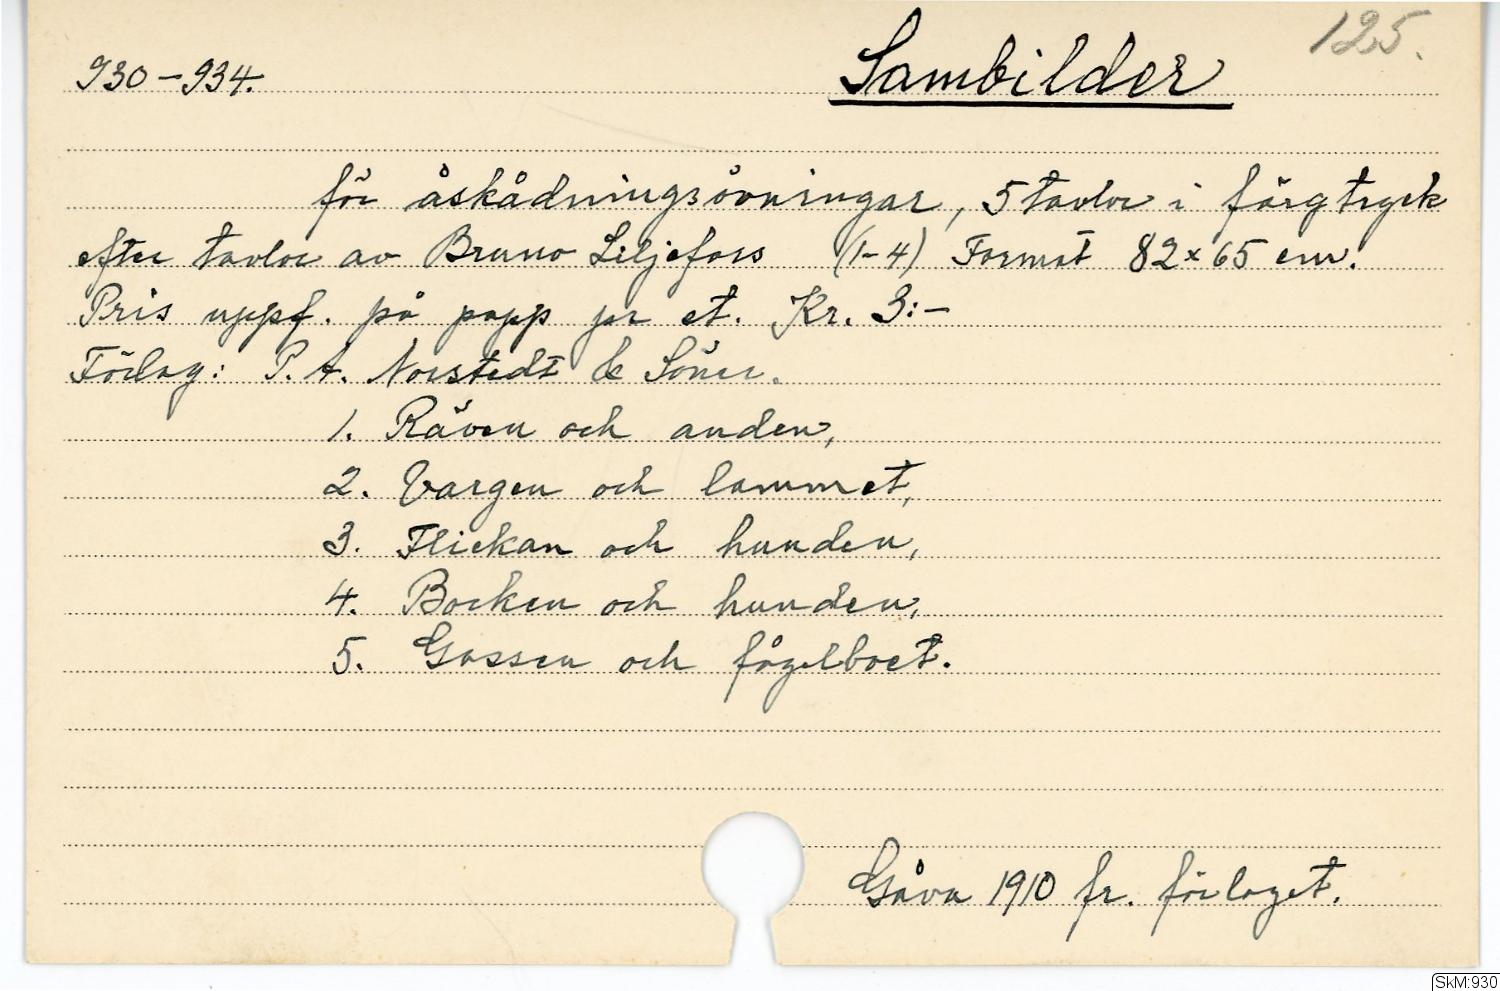 125.
930-934. Sambilder
för åskådningsövningar, 5 tavlor i färgtryck
efter tavlor av Bruno Liljefors (1-4) Format 82x65 cm.
Pris uppf. på papp pr st. Kr. 3:-
Förlag: P. A. Norstedt & Söner.
1. Räven och anden,
2. Vargen och lammet,
3. Flickan och hunden,
4. Bocken och hunden,
5. Gossen och fågelboet.
Gåva 1910 fr. förlaget.
SkM:930